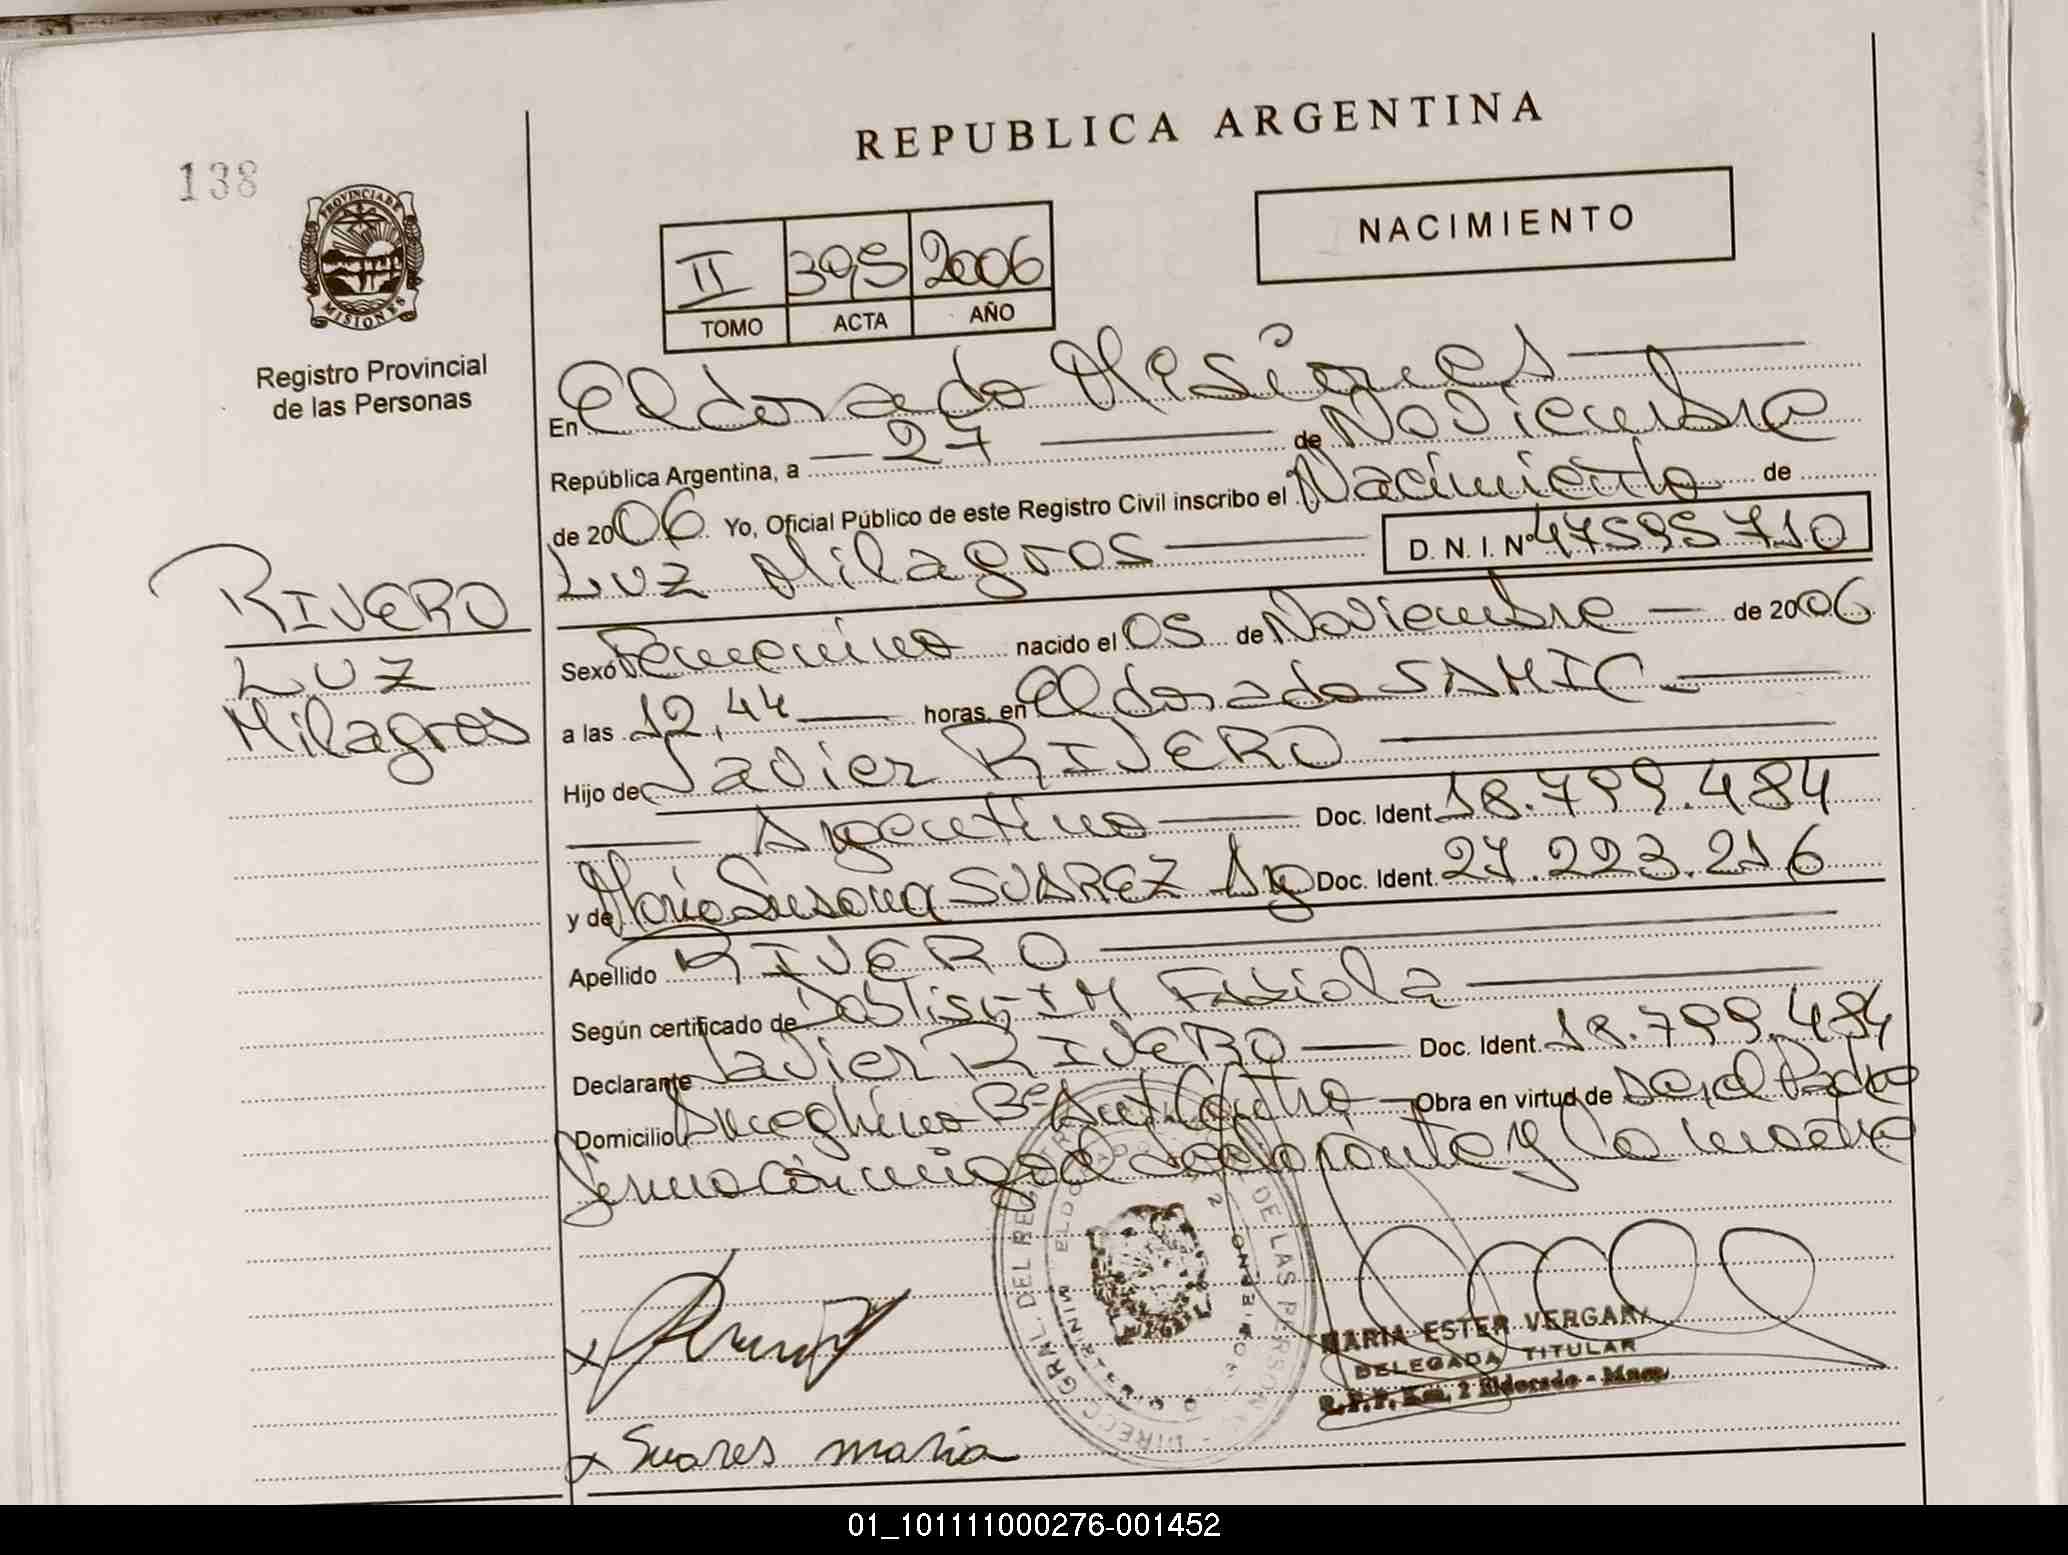 138
REPUBLICA ARGENTINA
PROVINCIA DE
MISIONES
Registro Provincial
de las Personas
II 395 2006
TOMO ACTA AÑO
NACIMIENTO
En Eldorado Misiones
República Argentina, a 27 de Noviembre
de 2006 Yo, Oficial Público de este Registro Civil inscribo el Nacimiento de
Luz Milagros D. N. I. Nº 47595710
RIVERO
LUZ
Milagros
Sexo Femenino nacido el 05 de Noviembre de 2006
a las 12,44 horas, en Eldorado SAMIC
Hijo de Javier RIVERO
Argentino Doc. Ident. 18.799.484
y de Maria Susana SUAREZ Arg Doc. Ident. 27.223.216
Apellido RIVERO
Según certificado de Fabiola
Declarante Javier RIVERO Doc. Ident. 18.799.484
Domicilio Ameghino Bº Obra en virtud de Ser el Padre
firma conmigo el declarante y la madre
DIRECC. GRAL. DEL REG. DE LAS PERSONAS
Suares maria
MARIA ESTER VERGARA
DELEGADA TITULAR
R.P.P. Km. 2 Eldorado - Mnes.
01_101111000276-001452